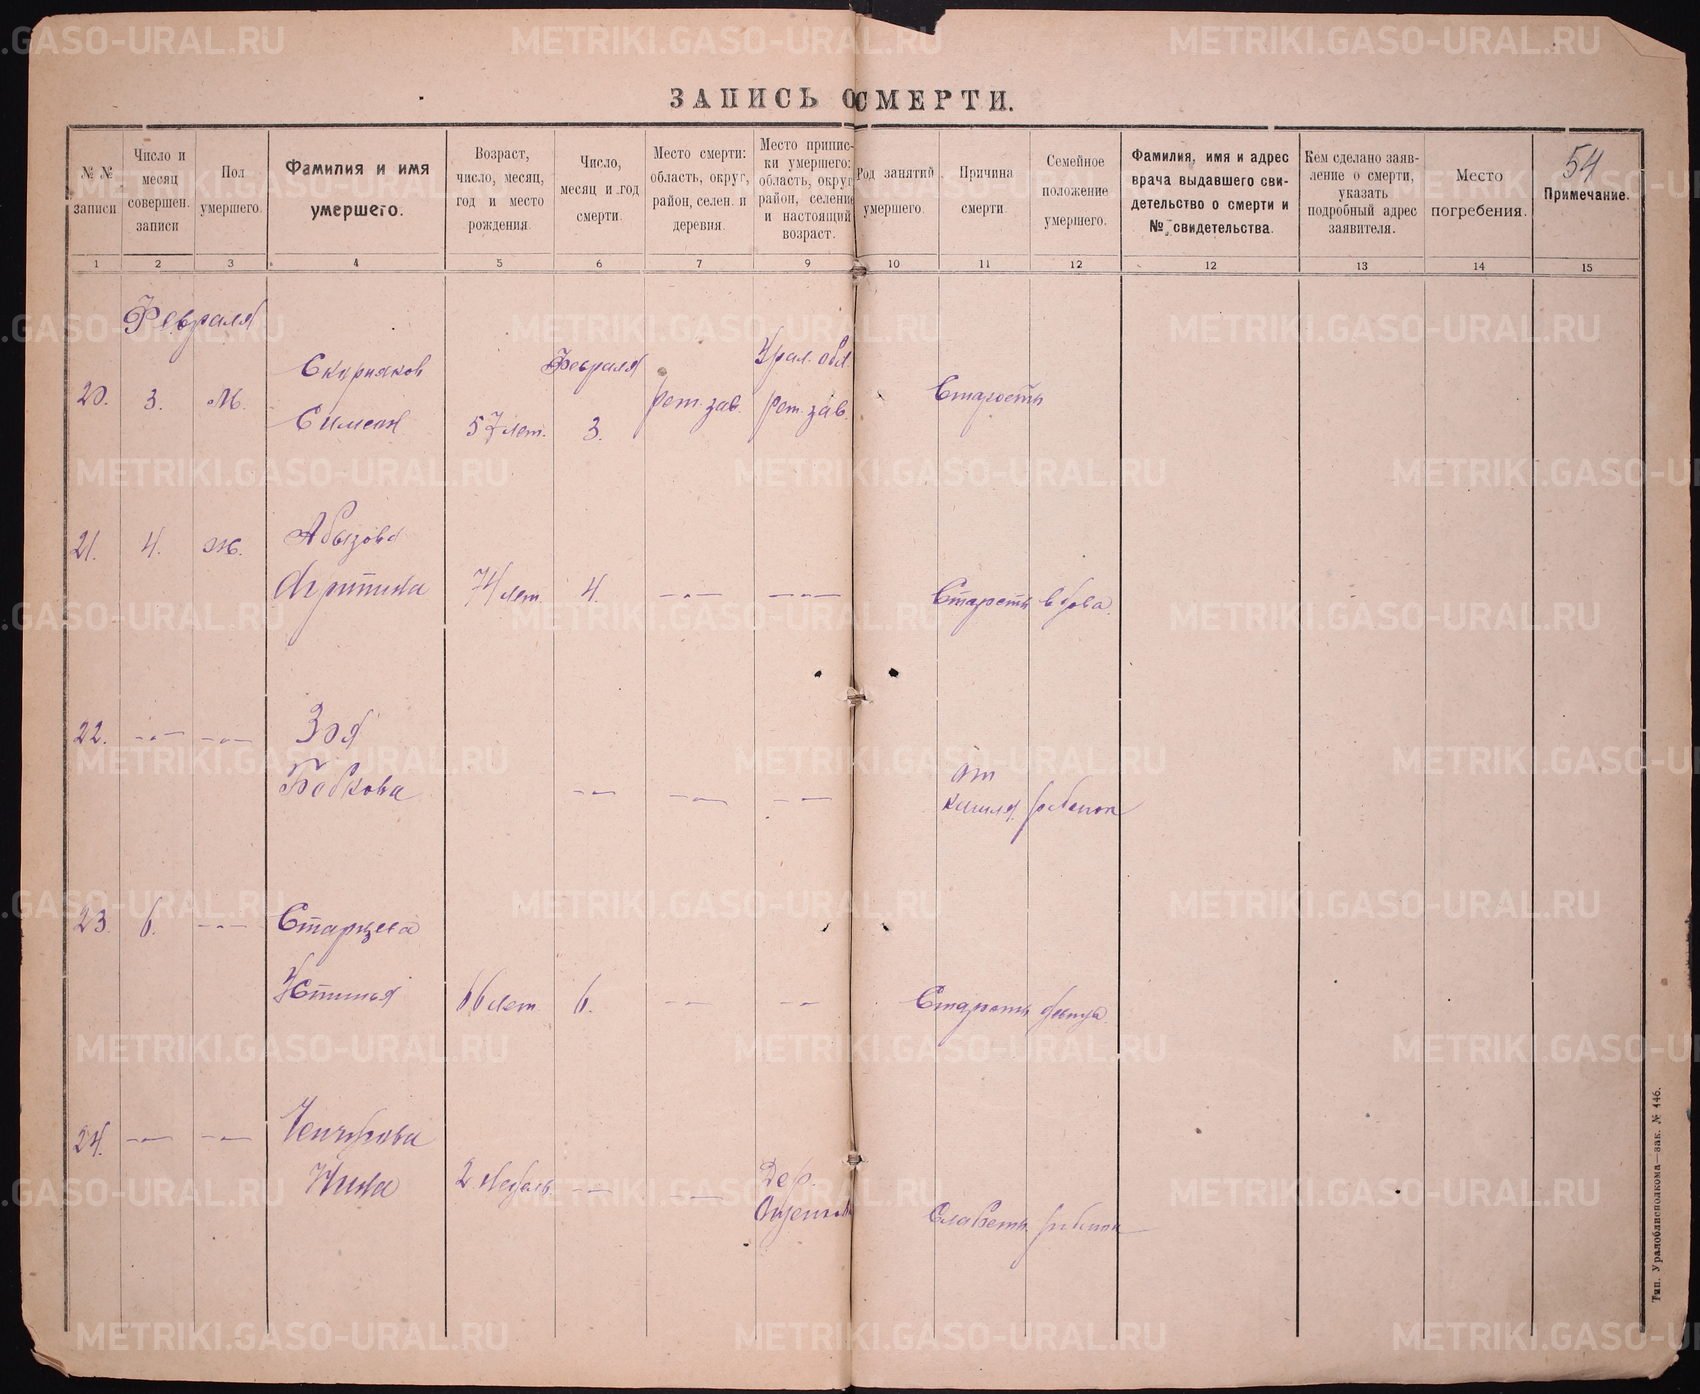 ЗАПИСЬ О СМЕРТИ.
54
№ №
записи
Число и
месяц
совершен.
записи
Пол
умершего.
Фамилия и имя
умершего.
Возраст,
число, месяц,
год и место
рождения.
Число,
месяц и год
смерти.
Место смерти:
область, округ,
район, селен. и
деревня.
Место припис-
ки умершего:
область, округ
район, селение
и настоящий
возраст.
Род занятий
умершего.
Причина
смерти.
Семейное
положение
умершего.
Фамилия, имя и адрес
врача выдавшего сви-
детельство о смерти и
№ свидетельства.
Кем сделано заяв-
ление о смерти,
указать
подробный адрес
заявителя.
Место
погребения.
Примечание.
1 2 3 4 5 6 7 9 10 11 12 12 13 14 15
Февраля
20. 3. М.
Скурняков
Симеон
57 лет.
Февраля
3.
рет. зав.
Урал. обл
рет. зав.
Старость
21. 4. Ж.
Абызова
74 лет. 4. -"- -"-
Старость вдова.
22. -"- -"-
Зоя
Бабкова
-"- -"- -"-
от
кашля. ребенок
23. 6. -"-
Старцева
Устинья
66 лет 6. -"- -"-
Старость девица.
24. -"- -"-
Нина
2 недель. -"- -"-
Дер.
Слабость ребенок
Тип. Уралоблисполкома—зак. № 446.
METRIKI.GASO-URAL.RU